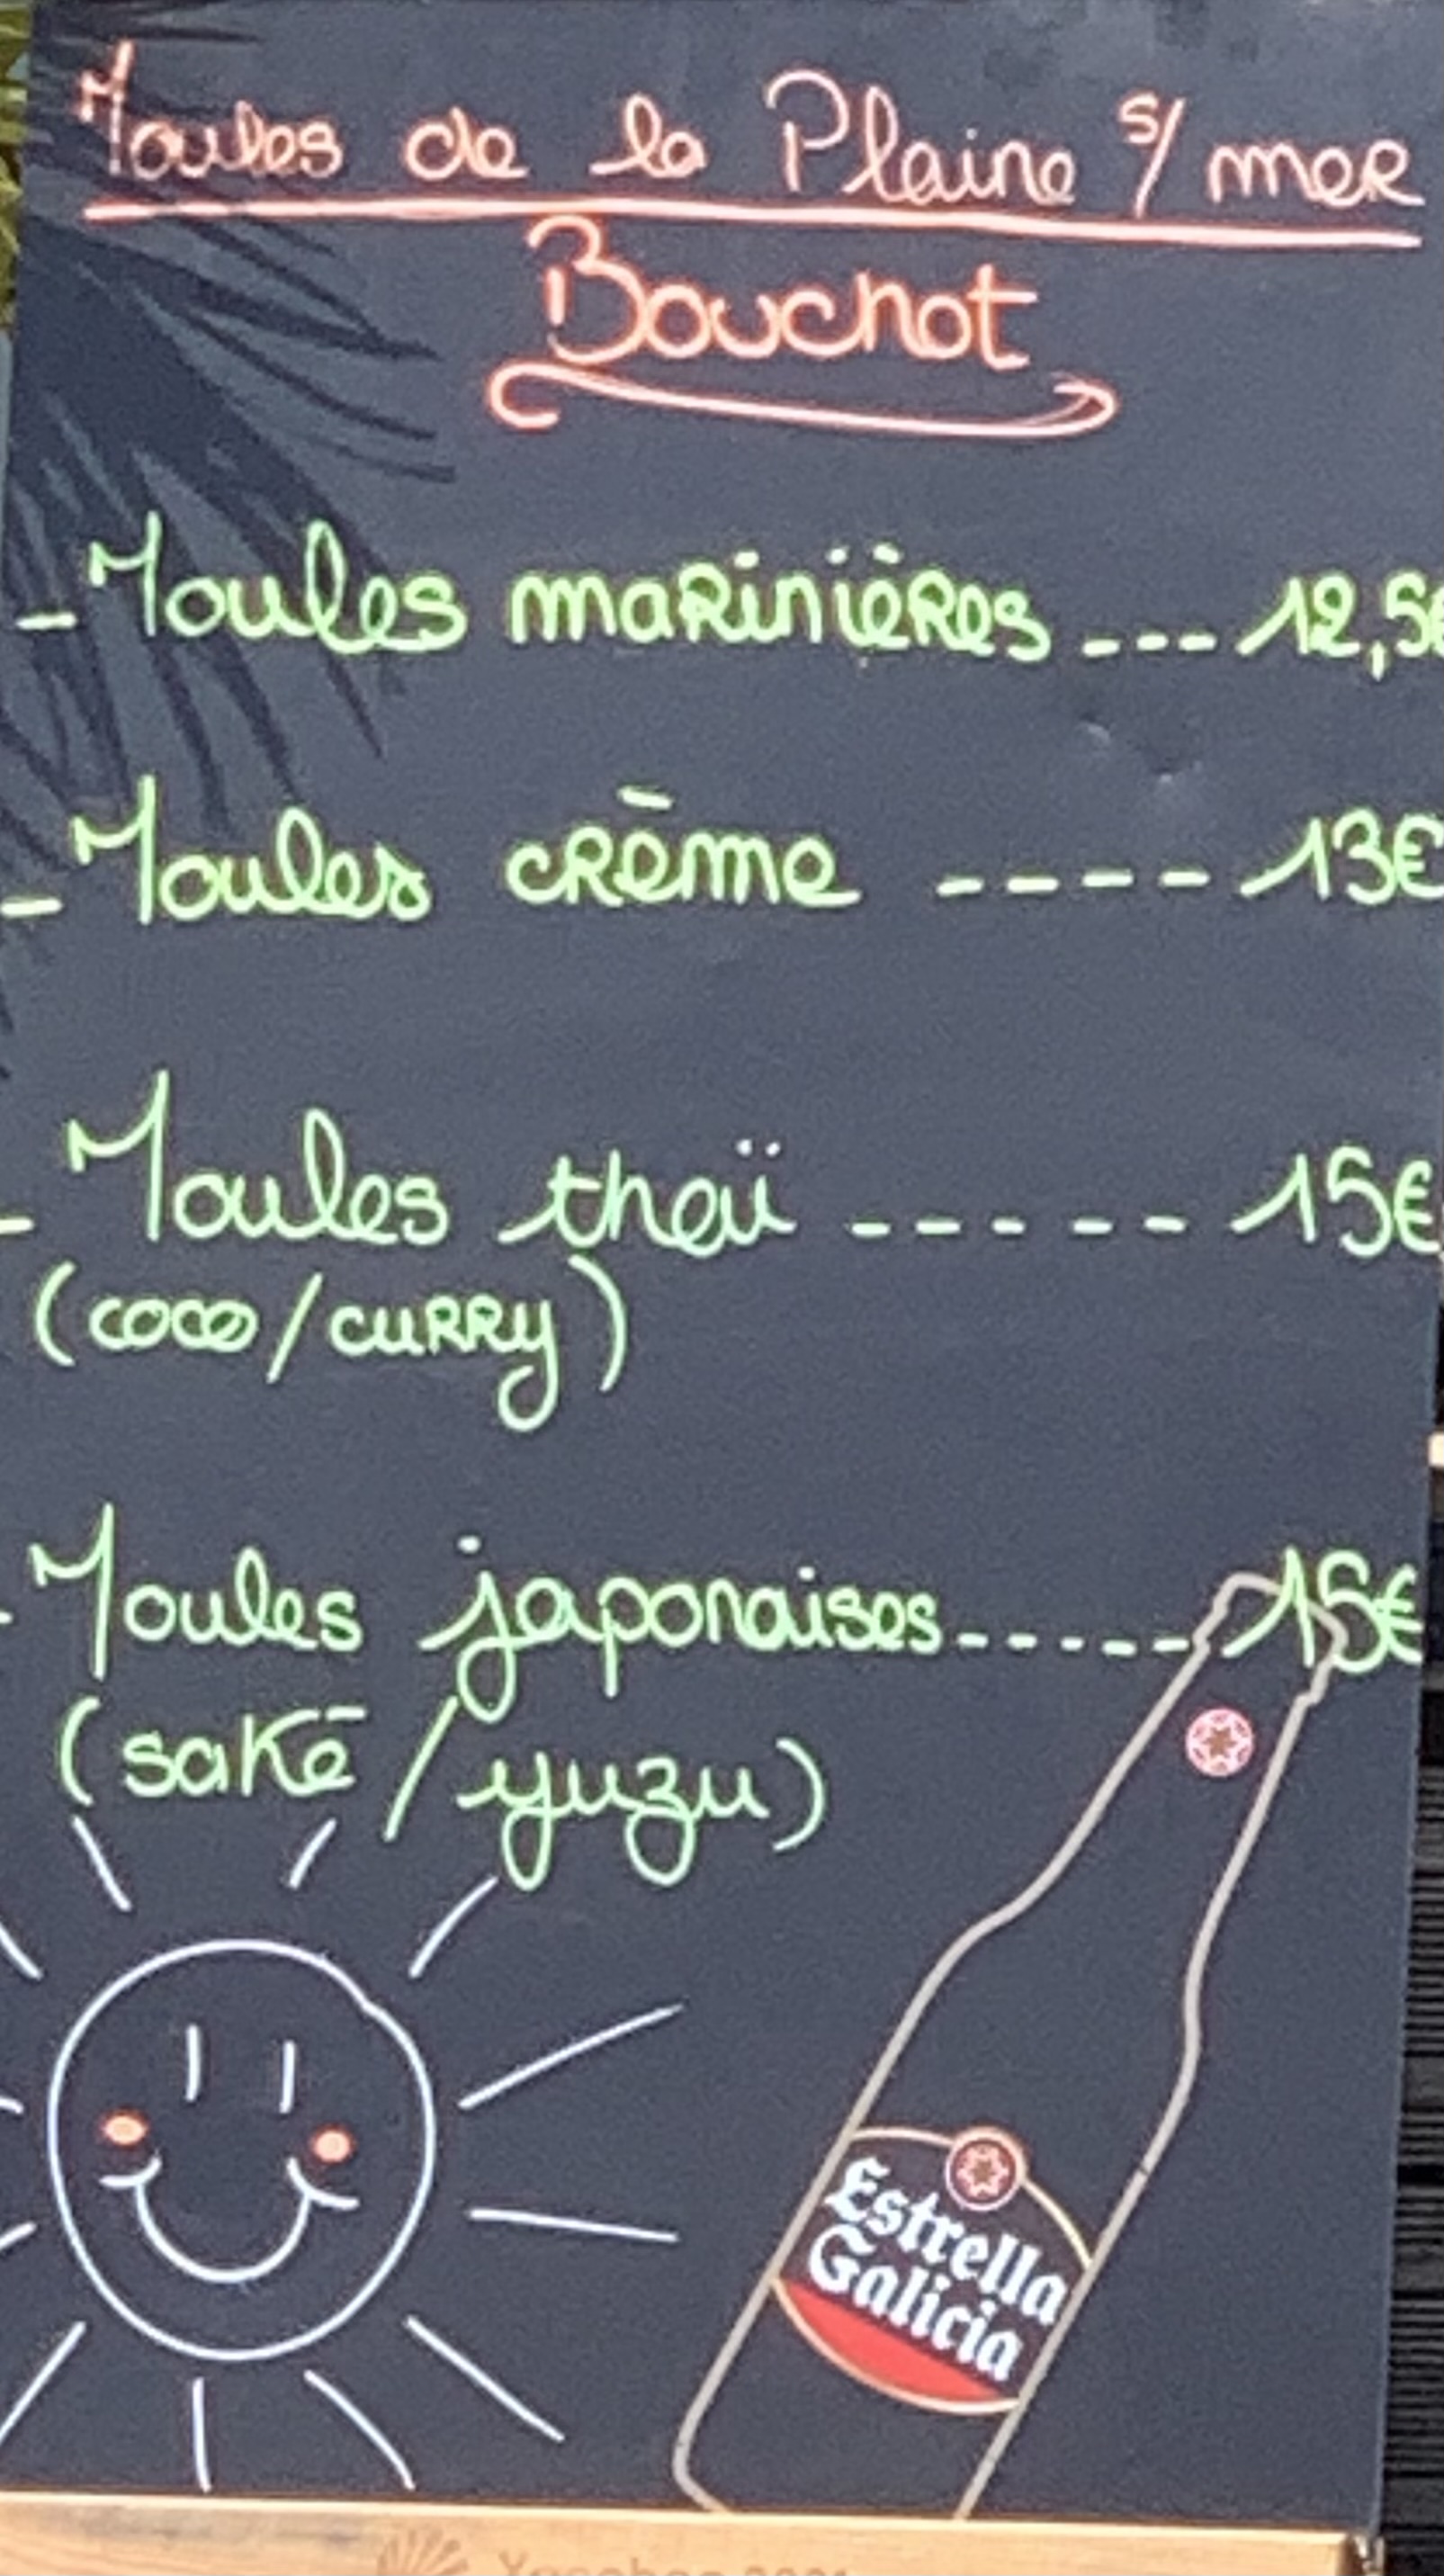 Moules de la Plaine s/ mer
Bouchot
- Moules marinières --- 12,5€
- Moules crème ---- 13€
- Moules thaï ----- 15€
(coco/curry)
- Moules japonaises ----- 15€
(saké / yuzu)
Estrella
Galicia